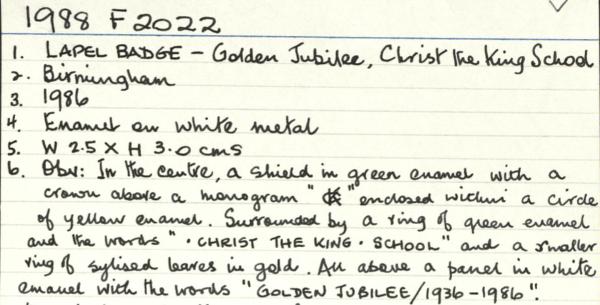 1988 F 2022
1. LAPEL BADGE – Golden Jubilee, Christ the King School
2. Birmingham
3. 1986
4. Enamel on white metal
5. W 2.5 X H 3.0 cms
6. Obv: In the centre, a shield in green enamel with a
crown above a monogram " " enclosed within a circle
of yellow enamel. Surrounded by a ring of green enamel
and the words " · CHRIST THE KING · SCHOOL" and a smaller
ring of sylised leaves in gold. All above a panel in white
enamel with the words "GOLDEN JUBILEE/1936-1986"